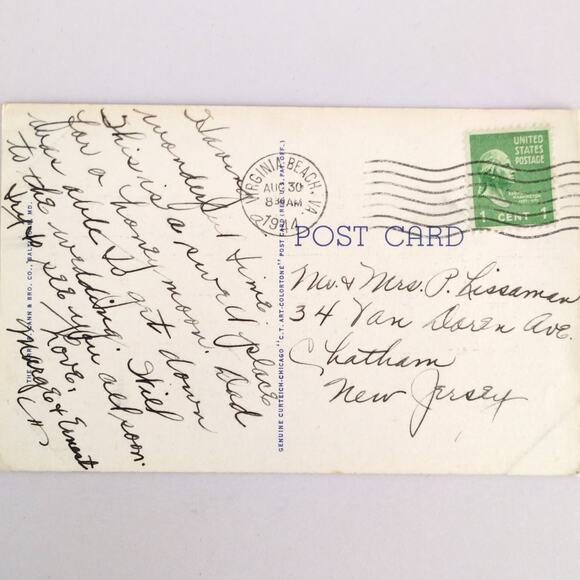 Having
wonderful time.
This is a swell place
for a honeymoon. Dad
was able to get down
to the wedding. Will
try & see you all soon.
Love,
Margie & Ernest
VIRGINIA BEACH, VA.
AUG 30
8 30 AM
UNITED
STATES
POSTAGE
WASHINGTON
1 CENT 1
POST CARD
Mr. & Mrs. P. Lissaman
34 Van Doren Ave.
Chatham
New Jersey
GENUINE CURTEICH-CHICAGO "C.T. ART-COLORTONE" POST CARD (REG. U.S. PAT. OFF.)
& BRO. CO., BALTIMORE, MD.